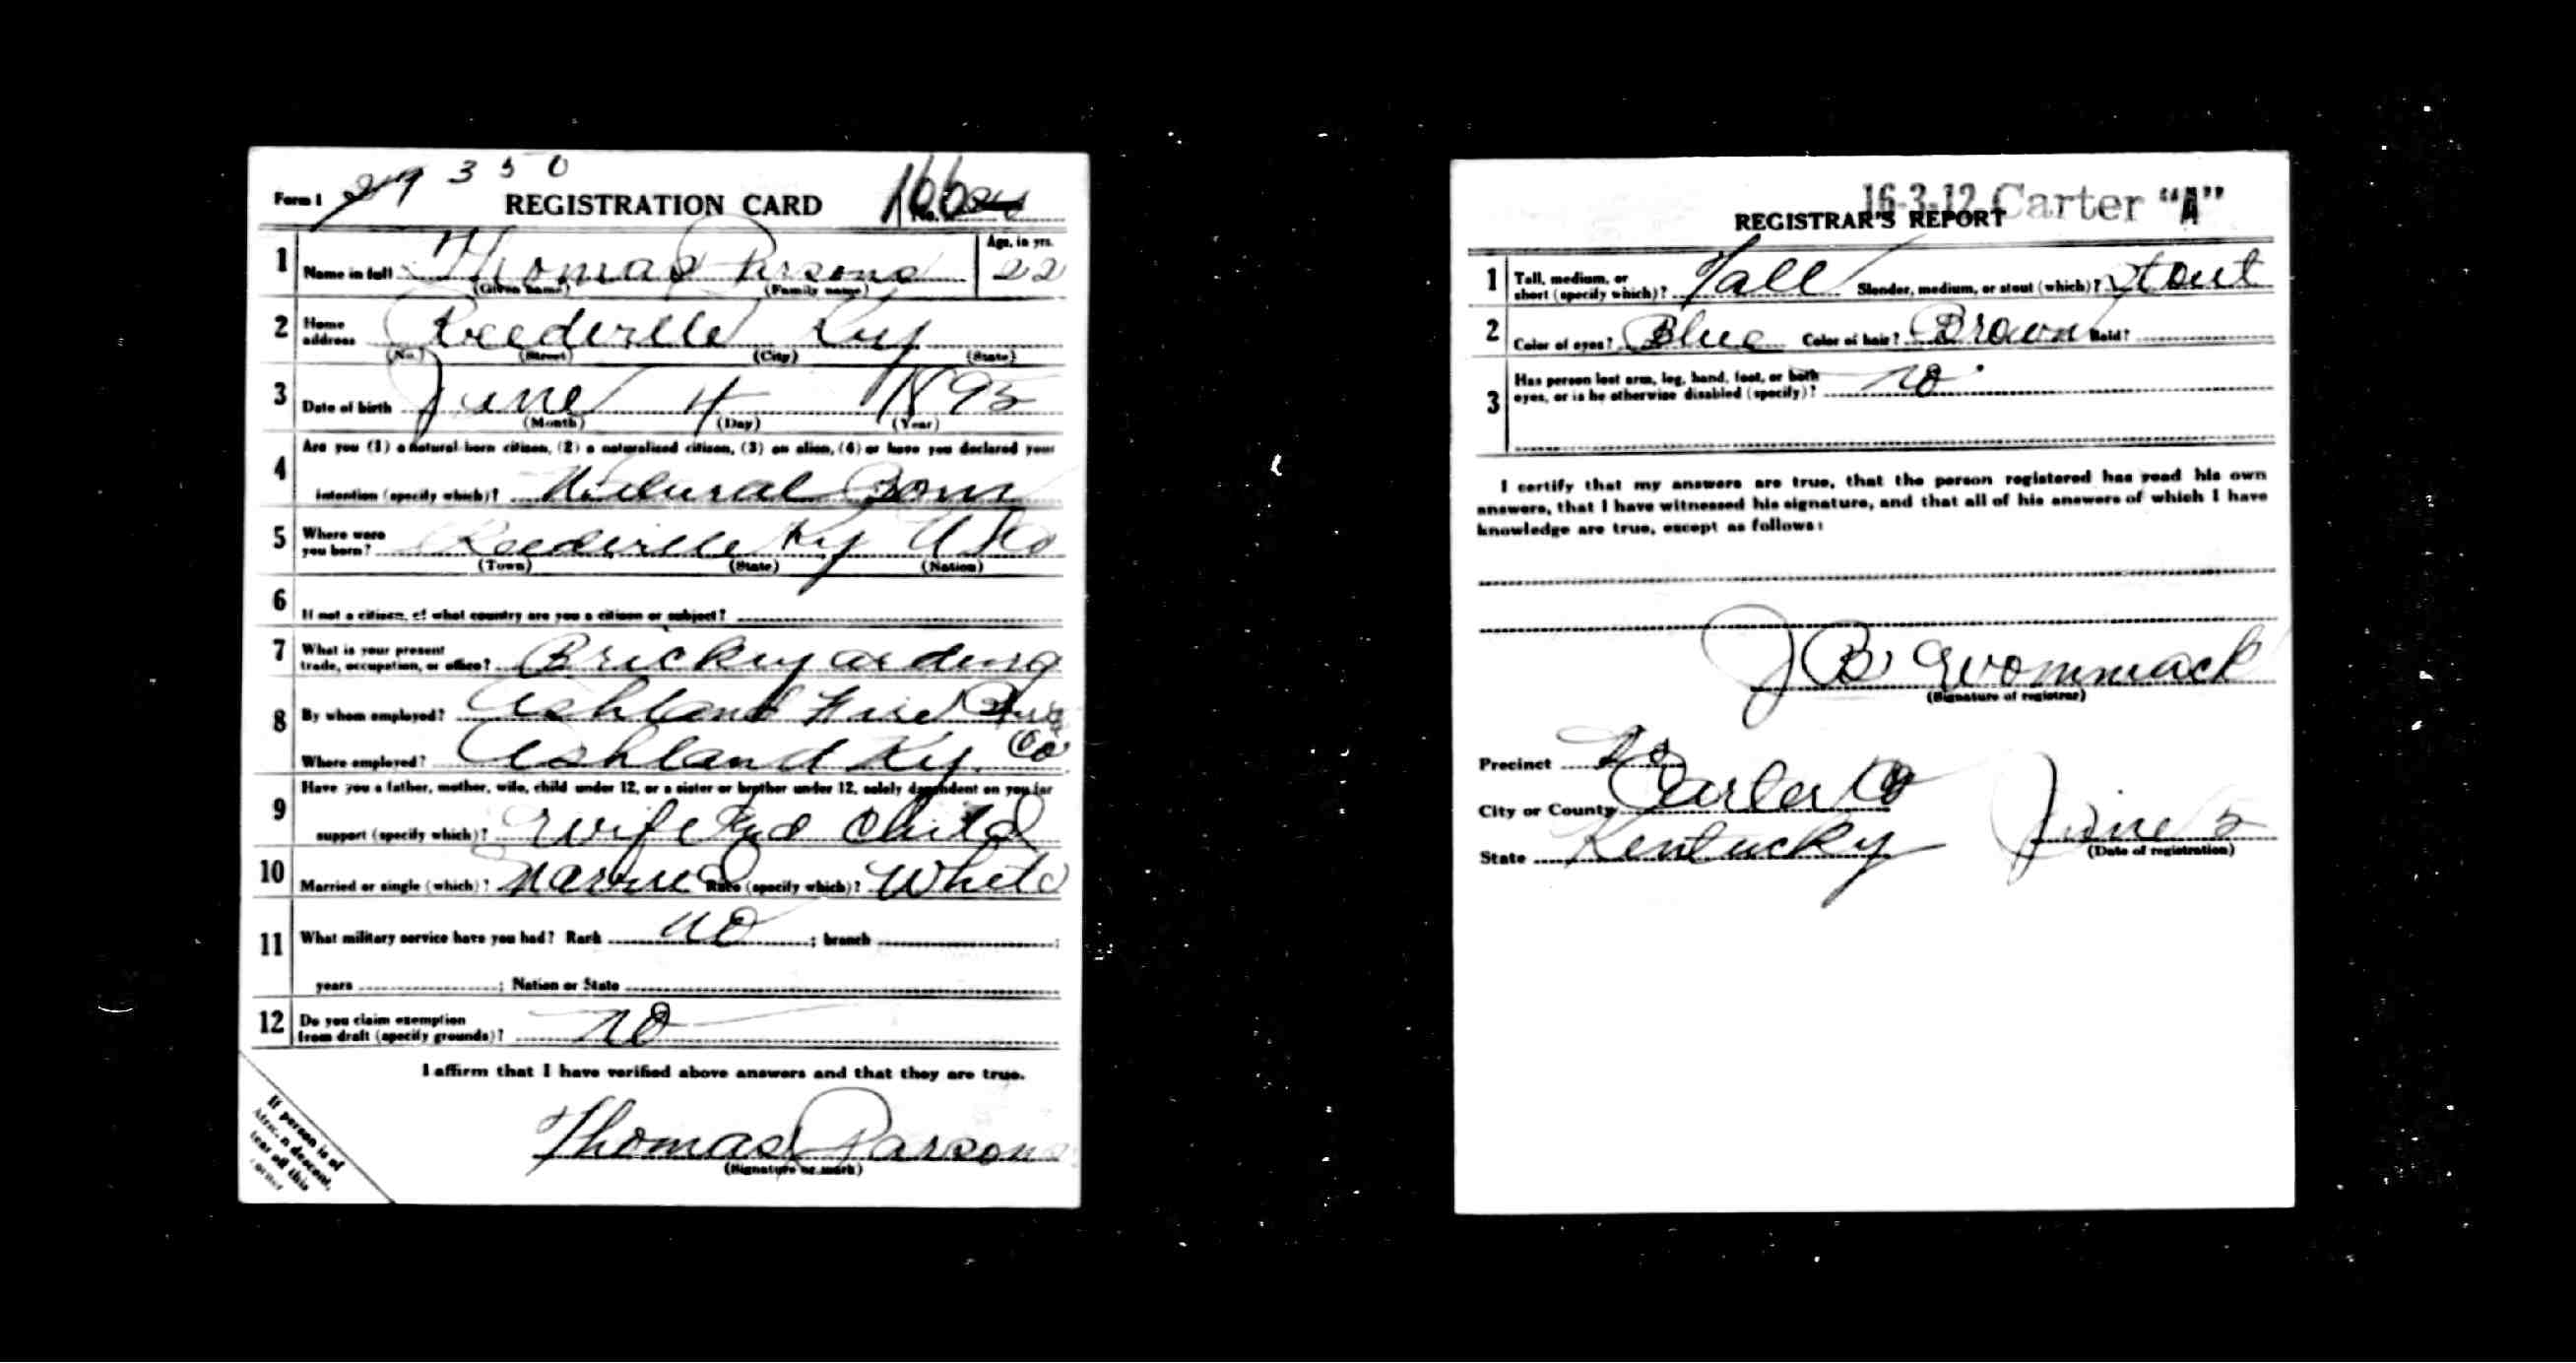 Form 1 29 350 REGISTRATION CARD No. 166
1 Name in full Thomas Parsons Age, in yrs. 22
(Given name) (Family name)
2 Home address Reedville Ky
(No.) (Street) (City) (State)
3 Date of birth June 4 1895
(Month) (Day) (Year)
4 Are you (1) a natural-born citizen, (2) a naturalized citizen, (3) an alien, (4) or have you declared your
intention (specify which)? Natural Born
5 Where were you born? Reedville Ky USA
(Town) (State) (Nation)
6 If not a citizen, of what country are you a citizen or subject?
7 What is your present trade, occupation, or office? Brickyarding
8 By whom employed? Ashland Fire Brick Co
Where employed? Ashland Ky.
9 Have you a father, mother, wife, child under 12, or a sister or brother under 12, solely dependent on you for
support (specify which)? Wife and Child
10 Married or single (which)? Married Race (specify which)? White
11 What military service have you had? Rank no ; branch ;
years ; Nation or State
12 Do you claim exemption from draft (specify grounds)? no
I affirm that I have verified above answers and that they are true.
Thomas Parsons
(Signature or mark)
If person is of
African descent,
tear off this
corner
16-3-12 Carter "A"
REGISTRAR'S REPORT
1 Tall, medium, or short (specify which)? Tall Slender, medium, or stout (which)? Stout
2 Color of eyes? Blue Color of hair? Brown Bald?
3 Has person lost arm, leg, hand, foot, or both
eyes, or is he otherwise disabled (specify)? no
I certify that my answers are true, that the person registered has read his own
answers, that I have witnessed his signature, and that all of his answers of which I have
knowledge are true, except as follows:
J B Wommack
(Signature of registrar)
Precinct
City or County Carter Co
State Kentucky June 5
(Date of registration)